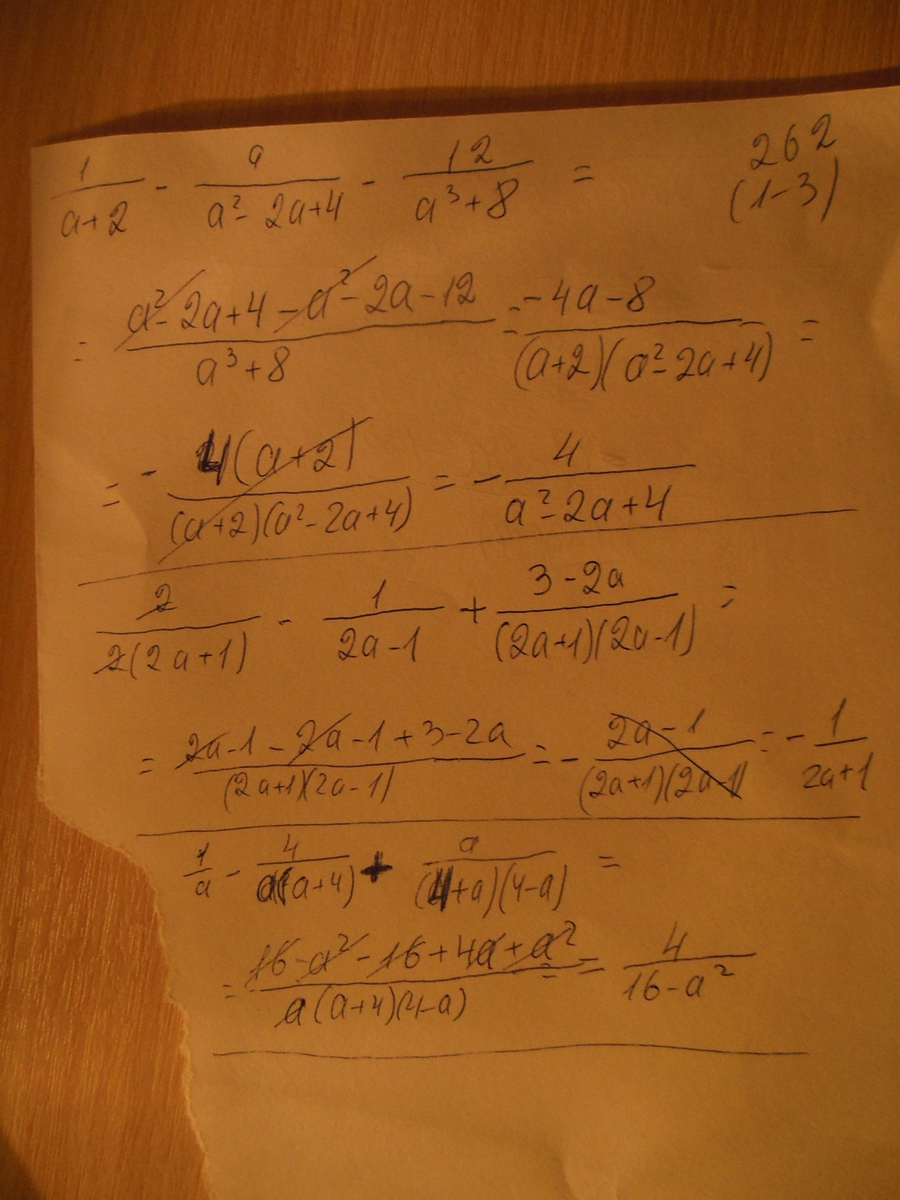 1/(a+2) - a/(a²-2a+4) - 12/(a³+8) = 262
(1-3)
= (a²-2a+4-a²-2a-12)/(a³+8) = (-4a-8)/((a+2)(a²-2a+4)) =
= - 4(a+2)/((a+2)(a²-2a+4)) = - 4/(a²-2a+4)
2/(2(2a+1)) - 1/(2a-1) + (3-2a)/((2a+1)(2a-1)) =
= (2a-1-2a-1+3-2a)/((2a+1)(2a-1)) = - (2a-1)/((2a+1)(2a-1)) = - 1/(2a+1)
1/a - 4/(a(a+4)) + a/((4+a)(4-a)) =
= (16-a²-16+4a+a²)/(a(a+4)(4-a)) = 4/(16-a²)